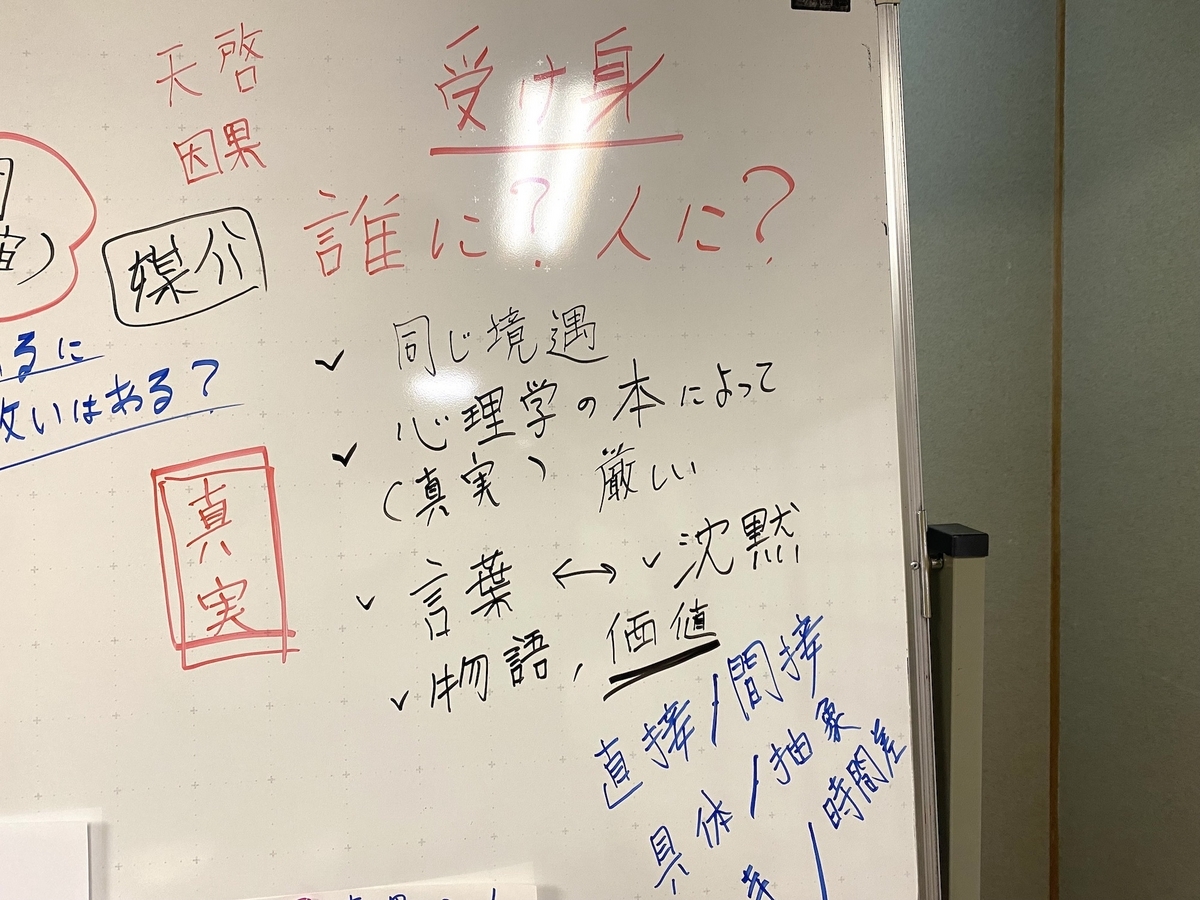 天啓
因果
媒介
受け身
誰に？人に？
るに
救いはある？
真実
✓ 同じ境遇
✓ 心理学の本によって
（真実） 厳しい
✓ 言葉 ↔ ✓ 沈黙
✓ 物語, 価値
直接/間接
具体/抽象
/時間差